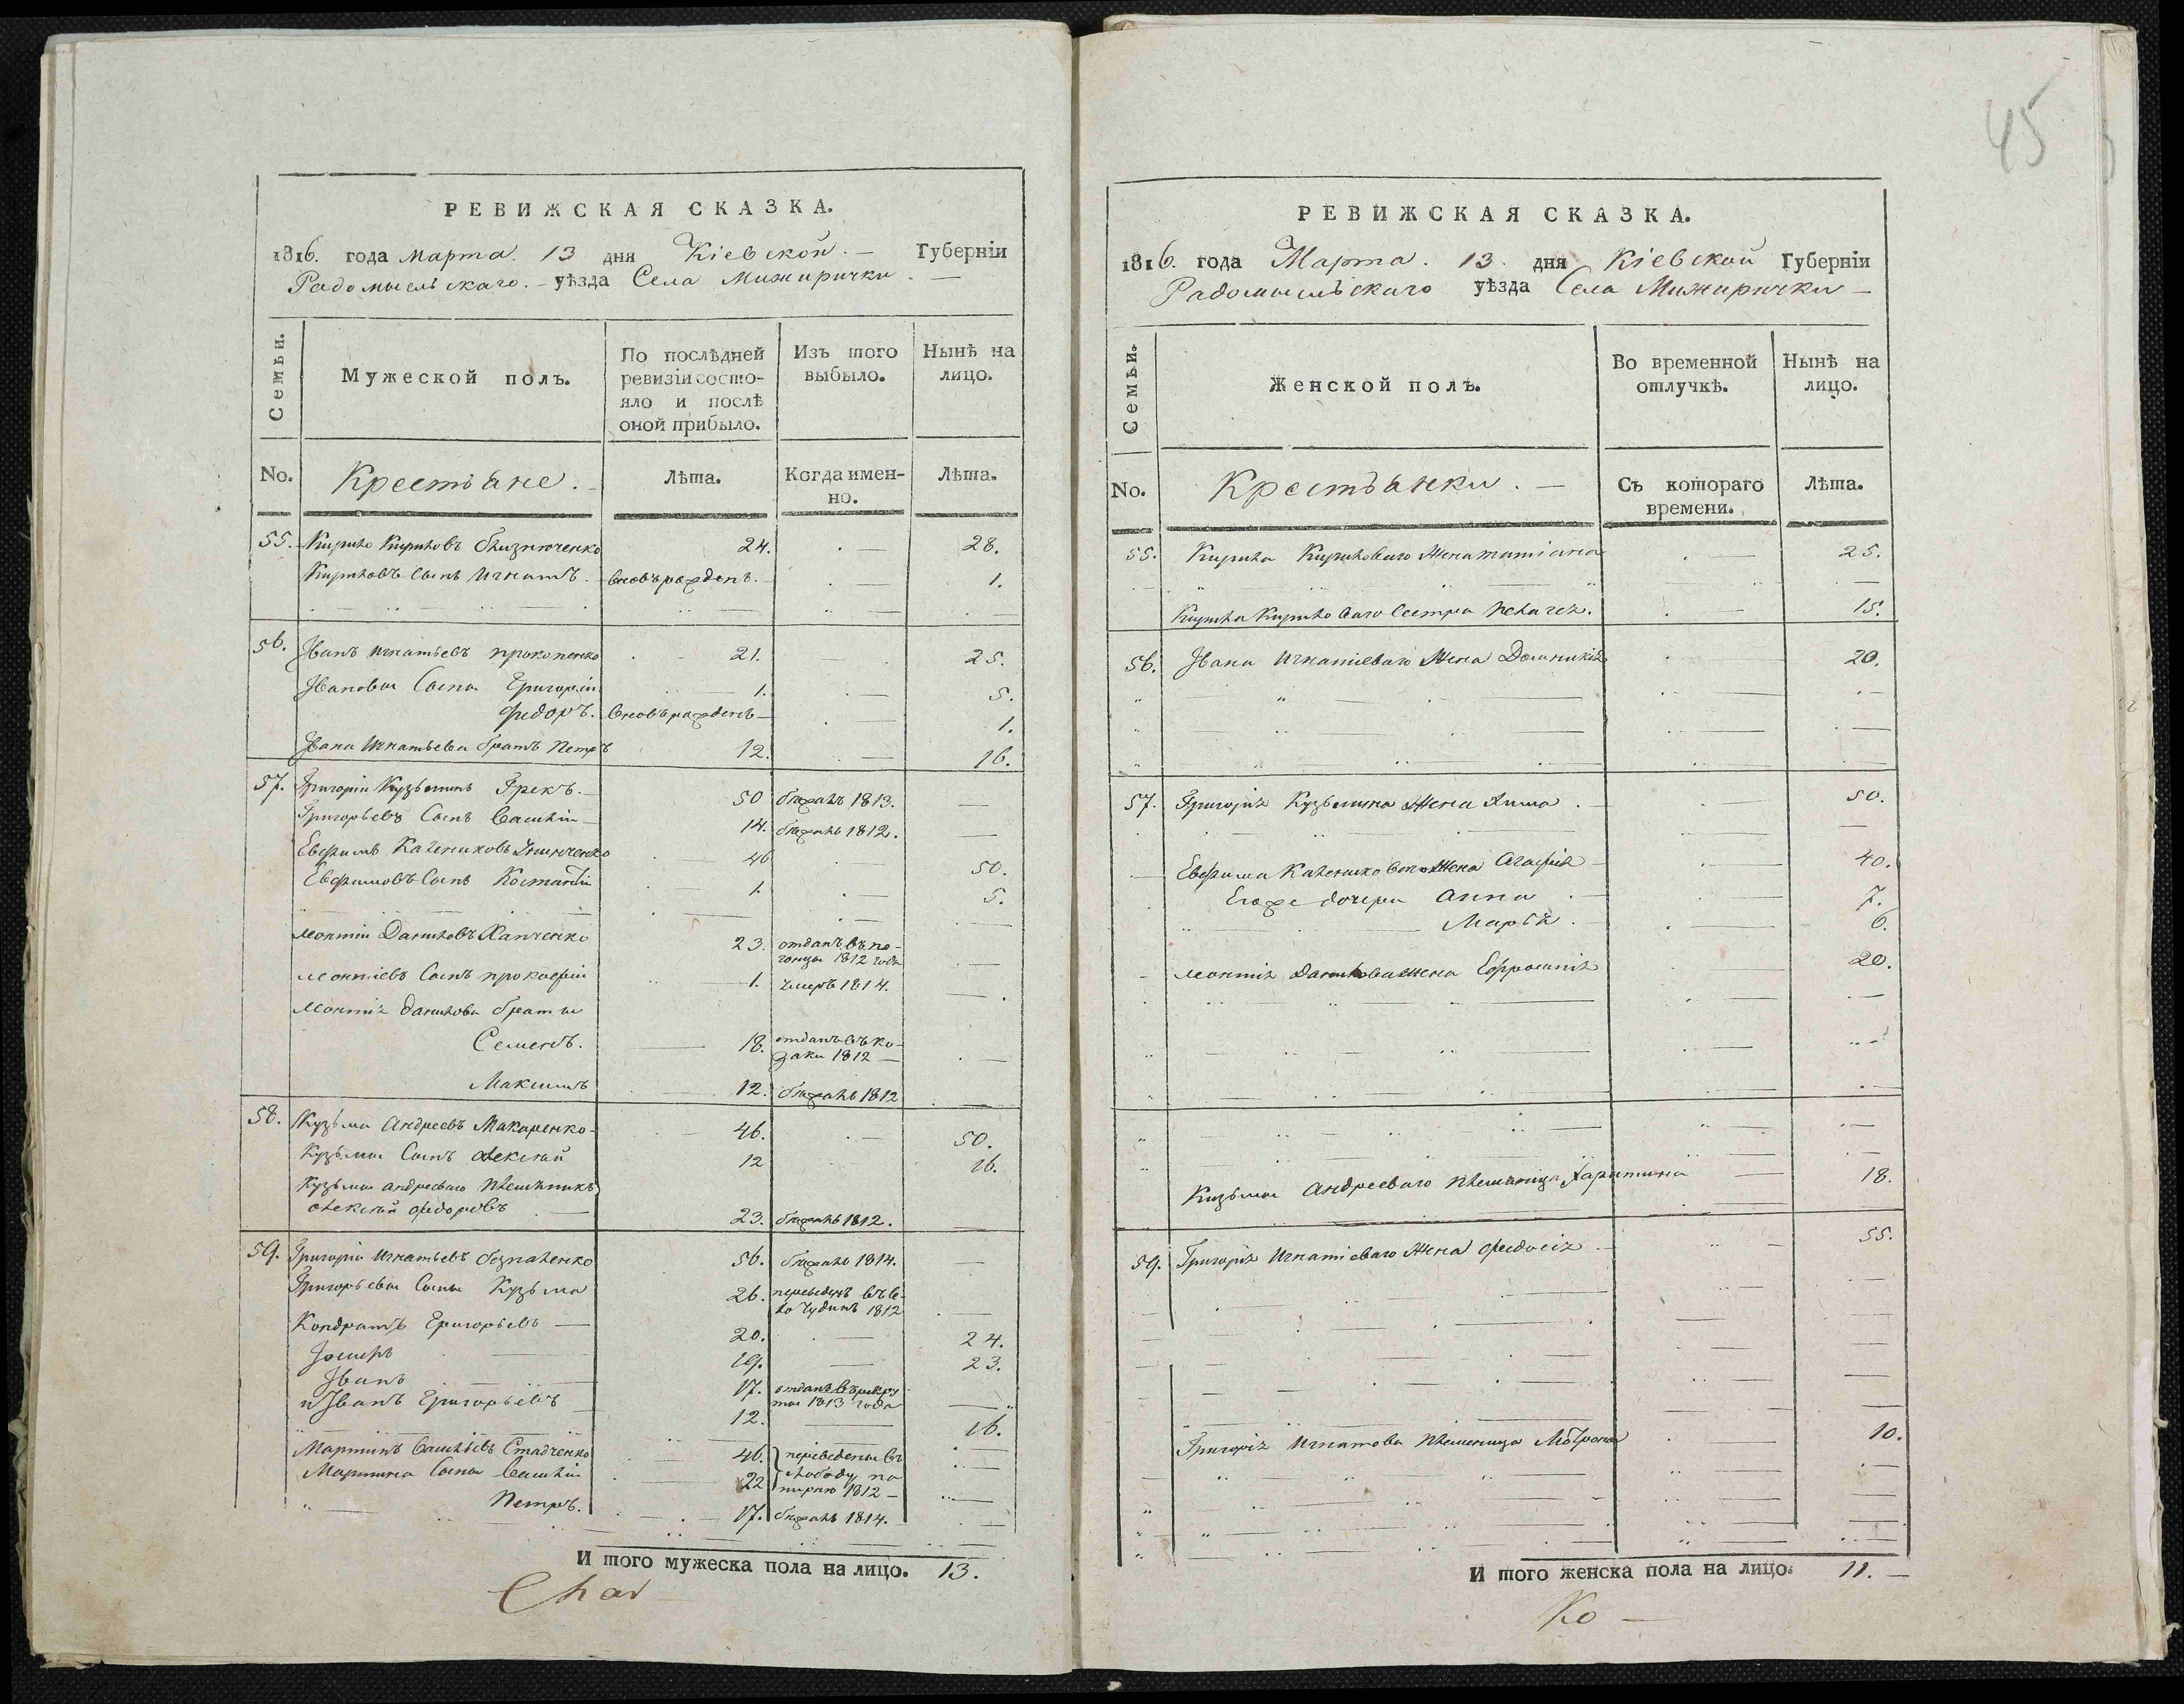 45
РЕВИЖСКАЯ СКАЗКА.
1816. года Марта. 13 дня Кіевской. — Губерніи
Радомысльскаго. — уѣзда Села Мижирички. —
Семьи.
Мужеской полъ.
По послѣдней
ревизіи состо-
яло и послѣ
оной прибыло.
Изъ того
выбыло.
Нынѣ на
лицо.
No.
Крестьяне.
Лѣта.
Когда имен-
но.
Лѣта.
55. Кирило Кириловъ Близнюченко 24. 28.
Кириловъ Сынъ Игнатъ. вновьрожденъ. 1.
56. Іванъ Игнатьевъ прокопенко 21. 25.
Івановы Сыны Григорій 1. 5.
Федоръ. вновьрожденъ 1.
Івана Игнатьева братъ Петръ 12. 16.
57. Григорій Кузьминъ Грекъ. 50 бѣжалъ 1813. —
Григорьевъ Сынъ Василій 14. бѣжалъ 1812. —
Евфимъ 46 50.
Евфимовъ Сынъ Костантій 1. 5.
Леонтій Даниловъ 23. отданъ въ по-
гонцы 1812 года
Леонтіевъ Сынъ прокофій 1. умеръ 1814.
Леонтія данилова браты
Семенъ. 18. отданъ въ ко-
заки 1812 —
Максимъ 12. бѣжалъ 1812
58. Кузьма Андреевъ Макаренко 46. 50.
Кузьмы Сынъ Алексѣй 12 16.
Кузьмы андрееваго племѣнникъ
Алексѣй федоровъ 23. бѣжалъ 1812.
59. Григорій Игнатьевъ 56. бѣжалъ 1814. —
Григорьевы Сыны Кузьма 26. переведенъ въ
1812
Кондратъ Григорьевъ — 20. 24.
19. 23.
Іванъ 17. отданъ въ рекру
ты 1813 года
и Іванъ Григорьевъ 12. 16.
Мартинъ Васильевъ Стадченко 46. переведены въ
Мартина Сыны Василій 22 слободу
1812 —
Петръ. 17. бѣжалъ 1814.
И того мужеска пола на лицо. 13.
РЕВИЖСКАЯ СКАЗКА.
1816. года Марта. 13. дня Кіевской Губерніи
Радомысльскаго уѣзда Села Мижирички —
Семьи.
Женской полъ.
Во временной
отлучкѣ.
Нынѣ на
лицо.
No.
Крестьянки. —
Съ котораго
времени.
Лѣта.
55. Кирила Кириловаго Жена татіана 25.
Кирила Кириловаго Сестра Пелагея. 15.
56. Івана Игнатіеваго Жена Домникія 20.
57. Григорія Кузьмина Жена Анна. 50.
Евфима Жена Агафія 40.
Егоже дочери Анна 7.
Марья. 6.
Леонтія Данилова Жена Ефросинія 20.
Кузьмы Андрееваго племѣница Харитина 18.
59. Григорія Игнатіеваго Жена Федосія 55.
Григорія Игнатова племеница Мотрона 10.
И того женска пола на лицо. 11. —
Ко —